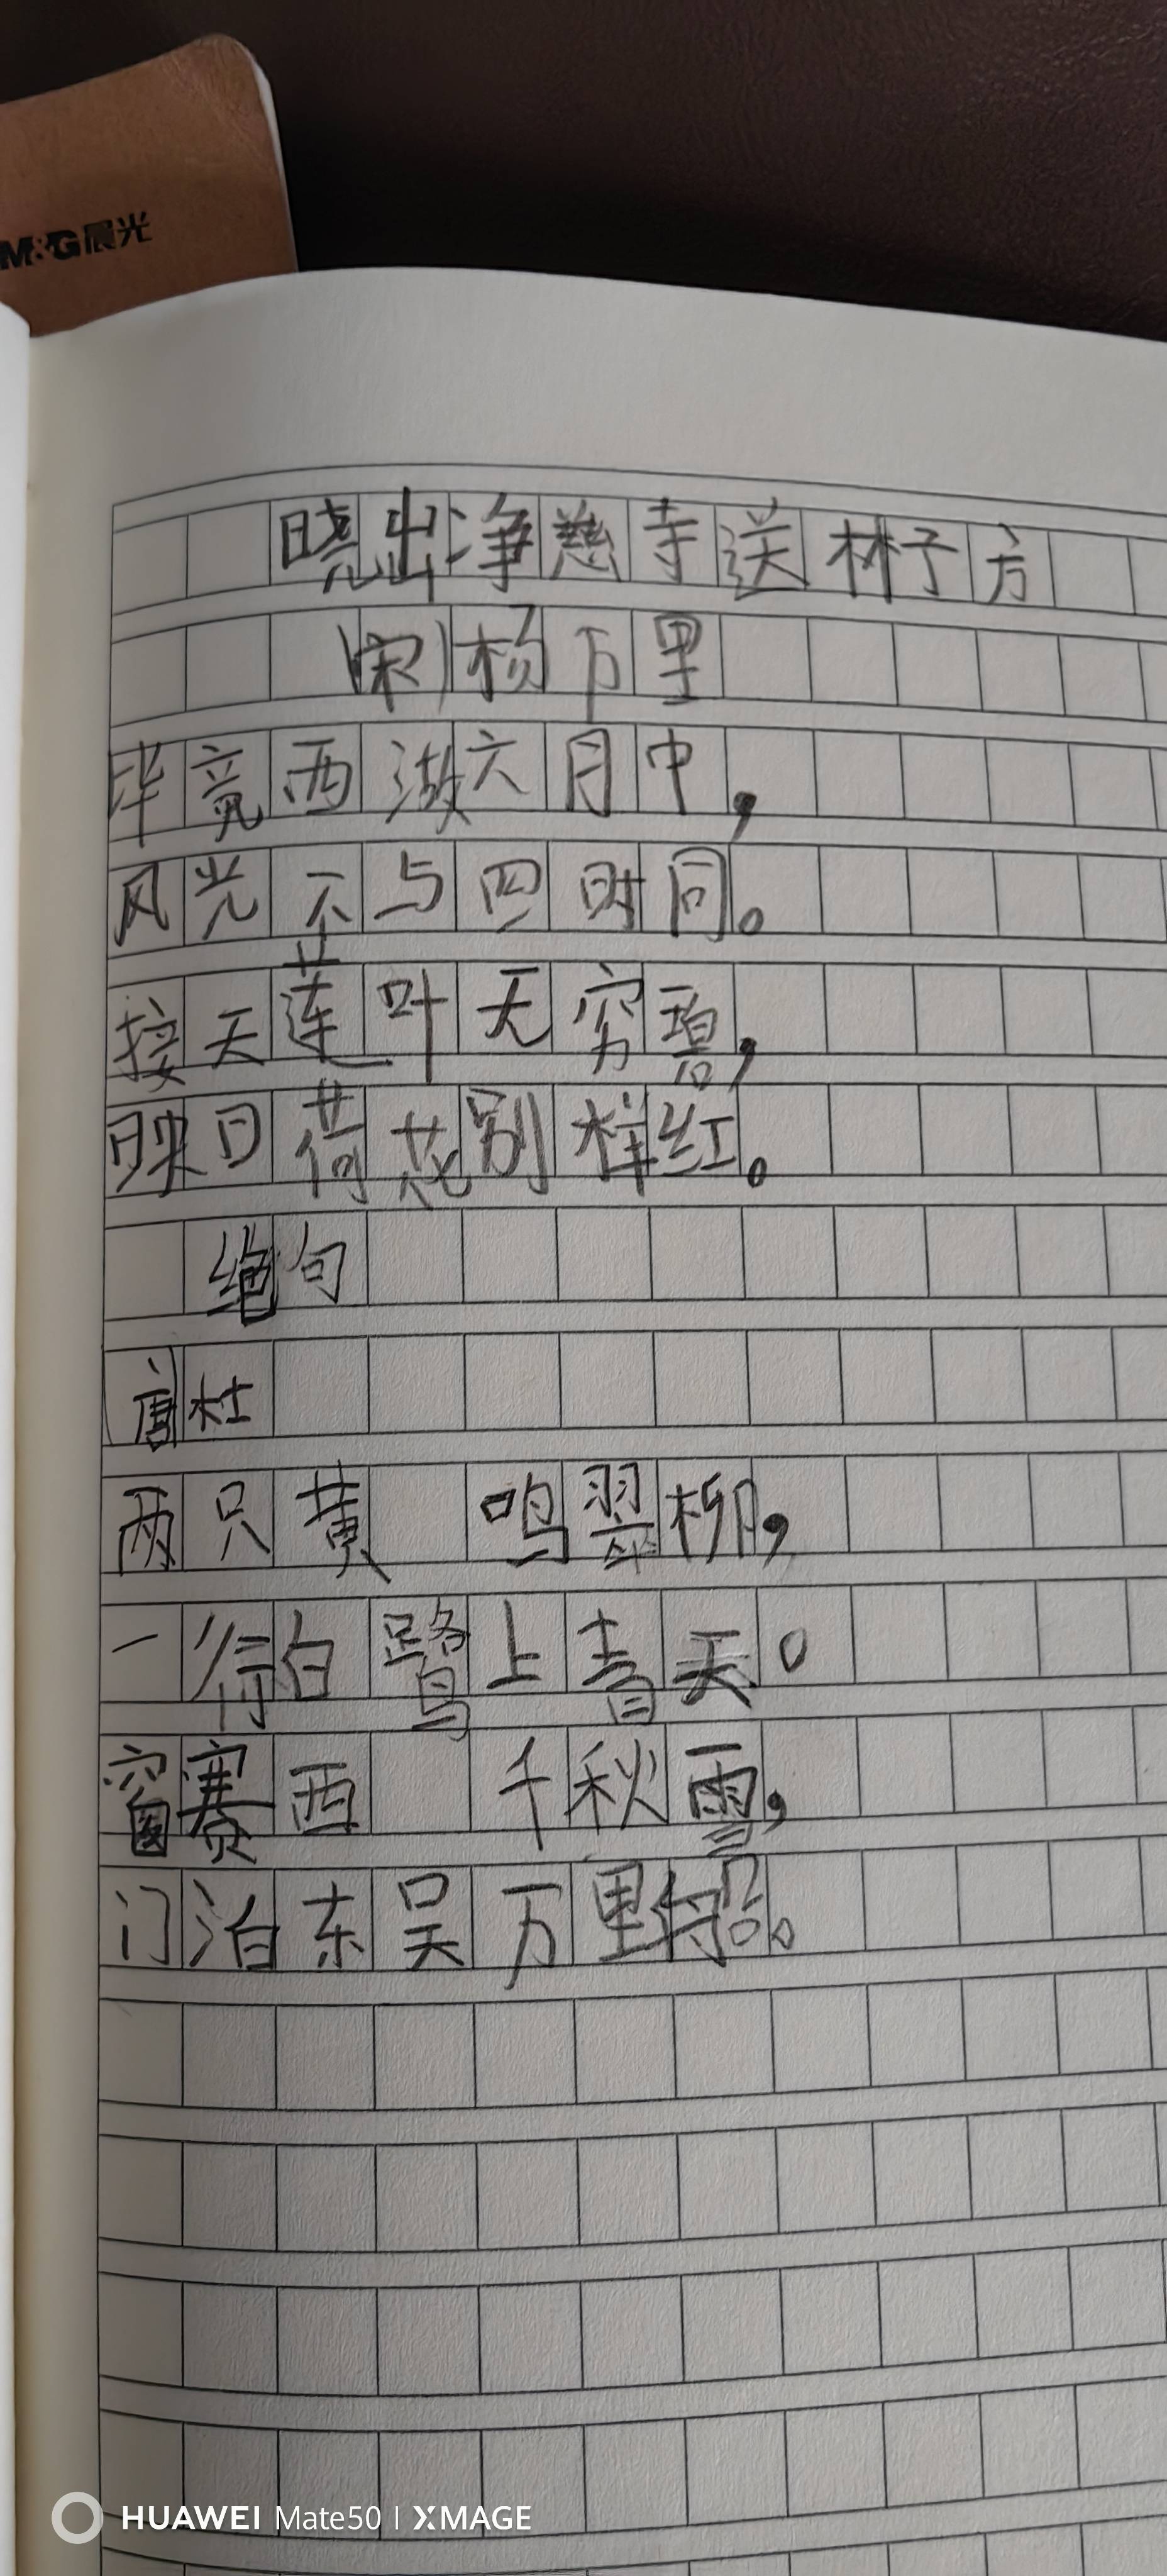 M&G晨光
晓出净慈寺送林子方
(宋)杨万里
毕竟西湖六月中,
风光不与四时同。
接天莲叶无穷碧,
映日荷花别样红。
绝句
(唐)杜
两只黄 鸣翠柳,
一行白鹭上青天。
窗赛西 千秋雪,
门泊东吴万里船。
HUAWEI Mate50 | XMAGE